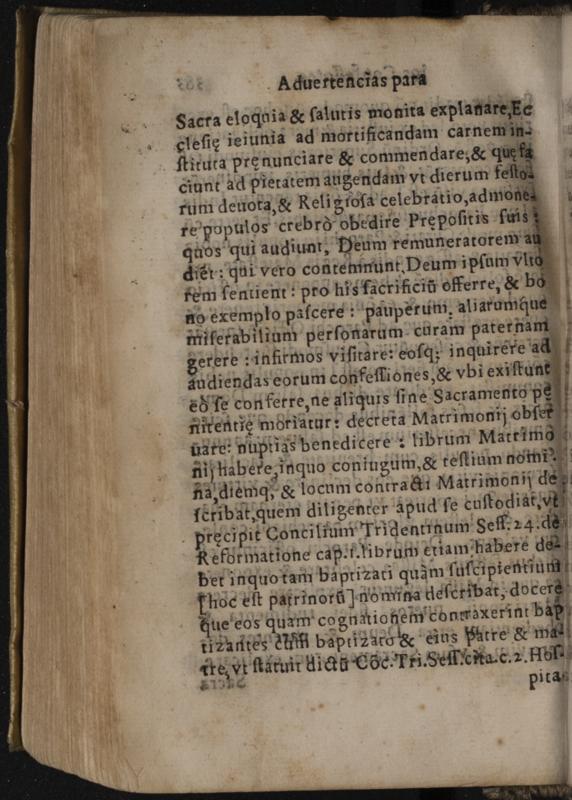 Aduertencias para
Sacra eloquia & ſalutis monita explanare, Ec
cleſię ieiunia ad mortificandam carnem in-
ſtituta pręnunciare & commendare, & quę fa
ciunt ad pietatem augendam vt dierum feſto-
rum deuota, & Religioſa celebratio, admone-
re populos crebrò obedire Prępoſitis ſuis:
quos qui audiunt, Deum remuneratorem au
diēt: qui vero contemnunt, Deum ipſum vlto
rem ſentient: pro his ſacrificiū offerre, & bo
no exemplo paſcere: pauperum, aliarumque
miſerabilium perſonarum curam paternam
gerere: infirmos viſitare: eoſq; inquirere ad
audiendas eorum confeſſiones, & vbi exiſtunt
eò ſe conferre, ne aliquis ſine Sacramento pę
nitentię moriatur: decreta Matrimonij obſer
uare: nuptias benedicere: librum Matrimo
nij habere, inquo coniugum, & teſtium nomi-
na, diemq; & locum contracti Matrimonij de
ſcribat, quem diligenter apud ſe cuſtodiat, vt
pręcipit Concilium Tridentinum Seſſ. 24. de
Reformatione cap. 1. librum etiam habere de-
bet inquo tam baptizati quàm ſuſcipientium
[hoc eſt patrinorū] nomina deſcribat, docere
que eos quam cognationem contraxerint bap
tizantes cum baptizato & eius patre & ma-
tre, vt ſtatuit dictū Cōc. Tri. Seſſ. cita. c. 2. Hoſ-
pita